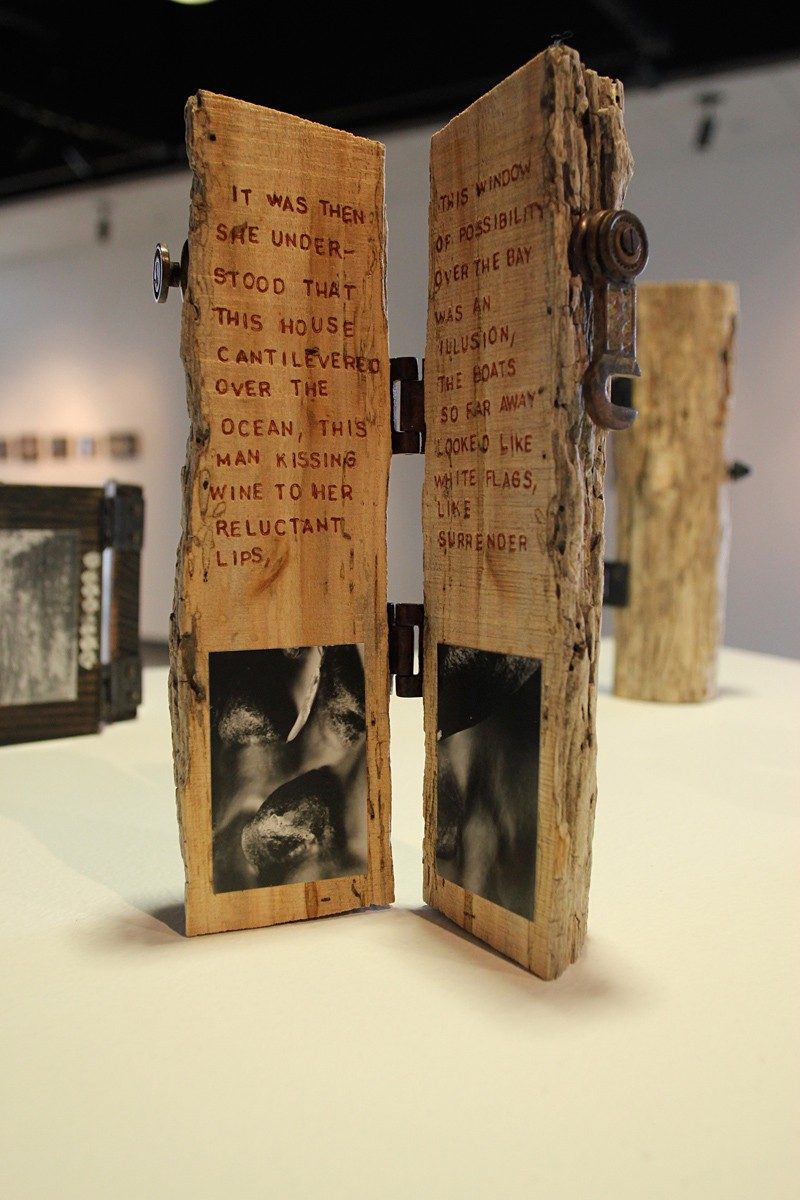 IT WAS THEN
SHE UNDER-
STOOD THAT
THIS HOUSE
CANTILEVERED
OVER THE
OCEAN, THIS
MAN KISSING
WINE TO HER
RELUCTANT
LIPS,
THIS WINDOW
OF POSSIBILITY
OVER THE BAY
WAS AN
ILLUSION,
THE BOATS
SO FAR AWAY
LOOKED LIKE
WHITE FLAGS,
LIKE
SURRENDER